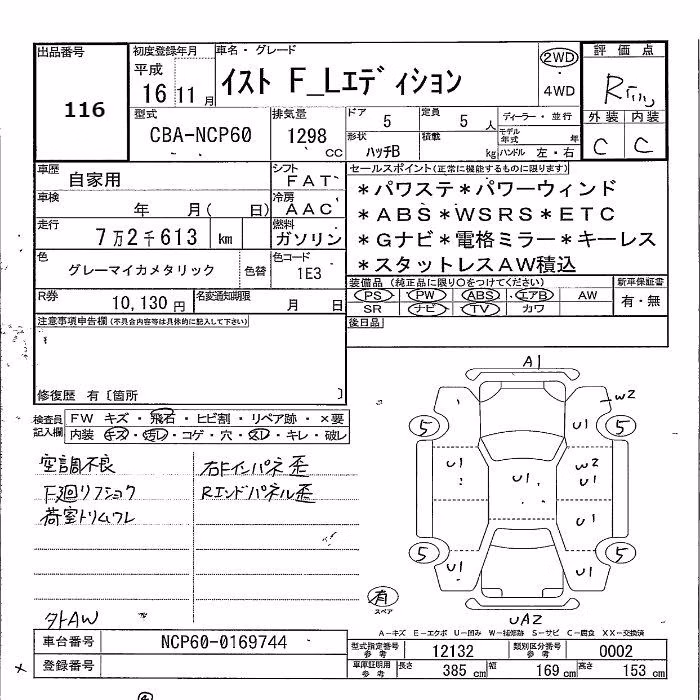 出品番号
116
初度登録年月
平成
16年 11月
車名・グレード
イスト F_Lエディション
2WD
・
4WD
評価点
R
外装 内装
C C
型式
CBA-NCP60
排気量
1298 CC
ドア 5
定員 5 人
ディーラー・並行
形状 ハッチB
積載 kg
モデル年式 年
ハンドル 左・右
車歴 自家用
シフト FAT
車検 年 月( 日)
冷房 AAC
走行 7万2千613 km
燃料 ガソリン
色 グレーマイカメタリック
色替
色コード 1E3
R券 10,130 円
名変通知期限 月 日
セールスポイント(正常に機能するものに限ります)
*パワステ*パワーウィンド
*ABS*WSRS*ETC
*Gナビ*電格ミラー*キーレス
*スタットレスAW積込
装備品 (純正品に限り○をつけてください)
新車保証書
PS PW ABS エアB AW
有・無
SR ナビ TV カワ
後日品
注意事項申告欄(不具合内容等は具体的に記入して下さい)
修復歴 有〔箇所 〕
検査員記入欄
FW キズ・飛石・ヒビ割・リペア跡・×要
内装 キズ・汚レ・コゲ・穴・スレ・キレ・破レ
空調不良
右Fインパネ歪
F廻リフショク
Rエンドパネル歪
荷室トリムワレ
外AW
A1
W2
5 U1 5
U1 W2
U1 U1
U1
5 5
U1 U1
有
スペア
UA2
A-キズ E-エクボ U-凹み W-補修跡 S-サビ C-腐食 XX-交換済
車台番号 NCP60-0169744
登録番号
型式指定番号 参考 12132
類別区分番号 参考 0002
車庫証明用 参考
長さ 385 cm
幅 169 cm
高さ 153 cm